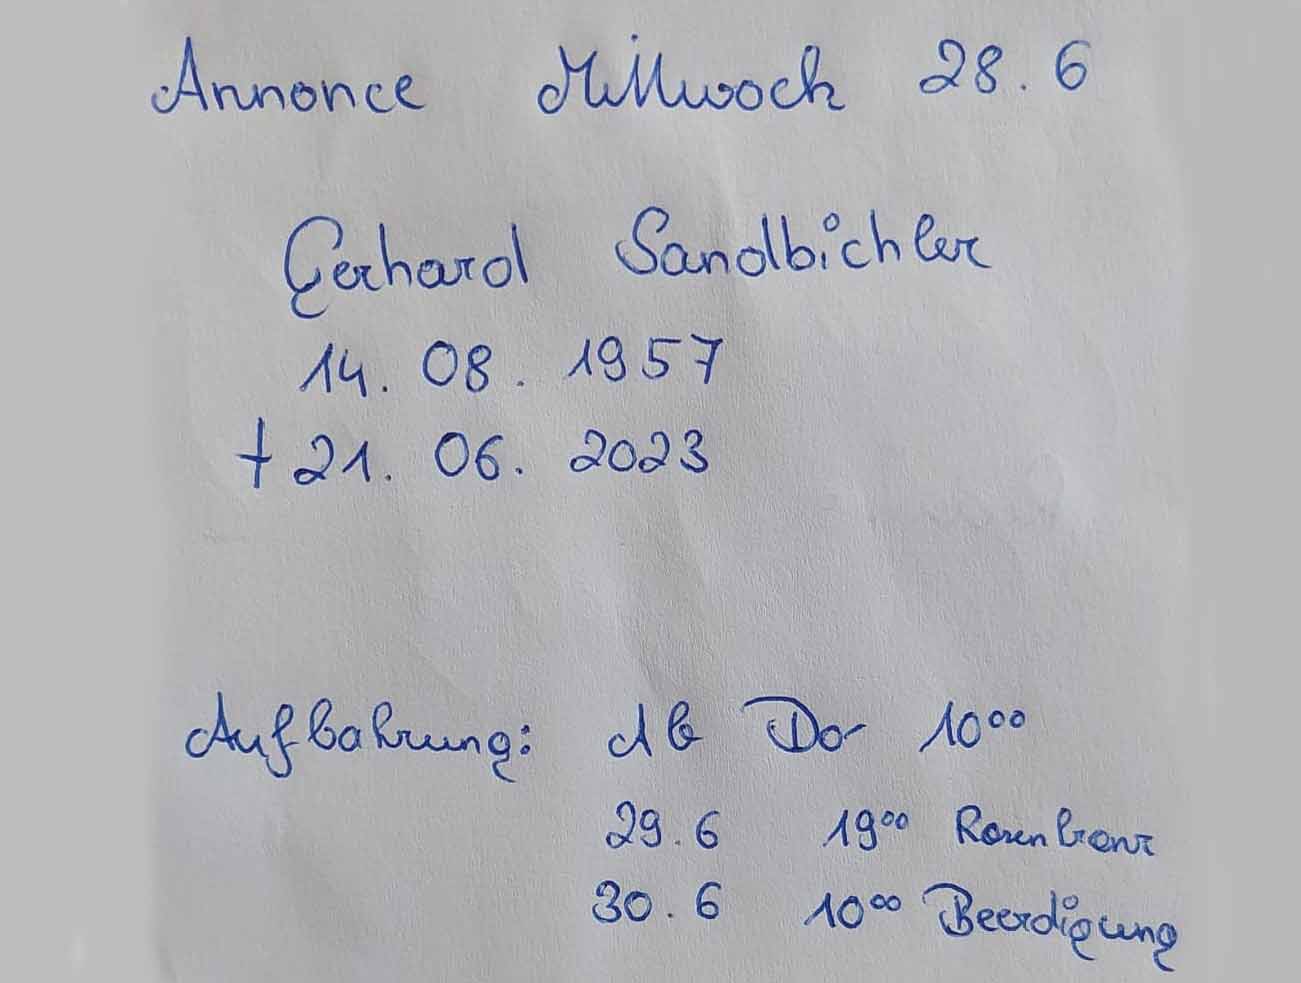 Annonce Mittwoch 28.6
Gerhard Sandbichler
14.08.1957
† 21.06.2023
Aufbahrung: Ab Do 10⁰⁰
29.6 19⁰⁰ Rosenkranz
30.6 10⁰⁰ Beerdigung